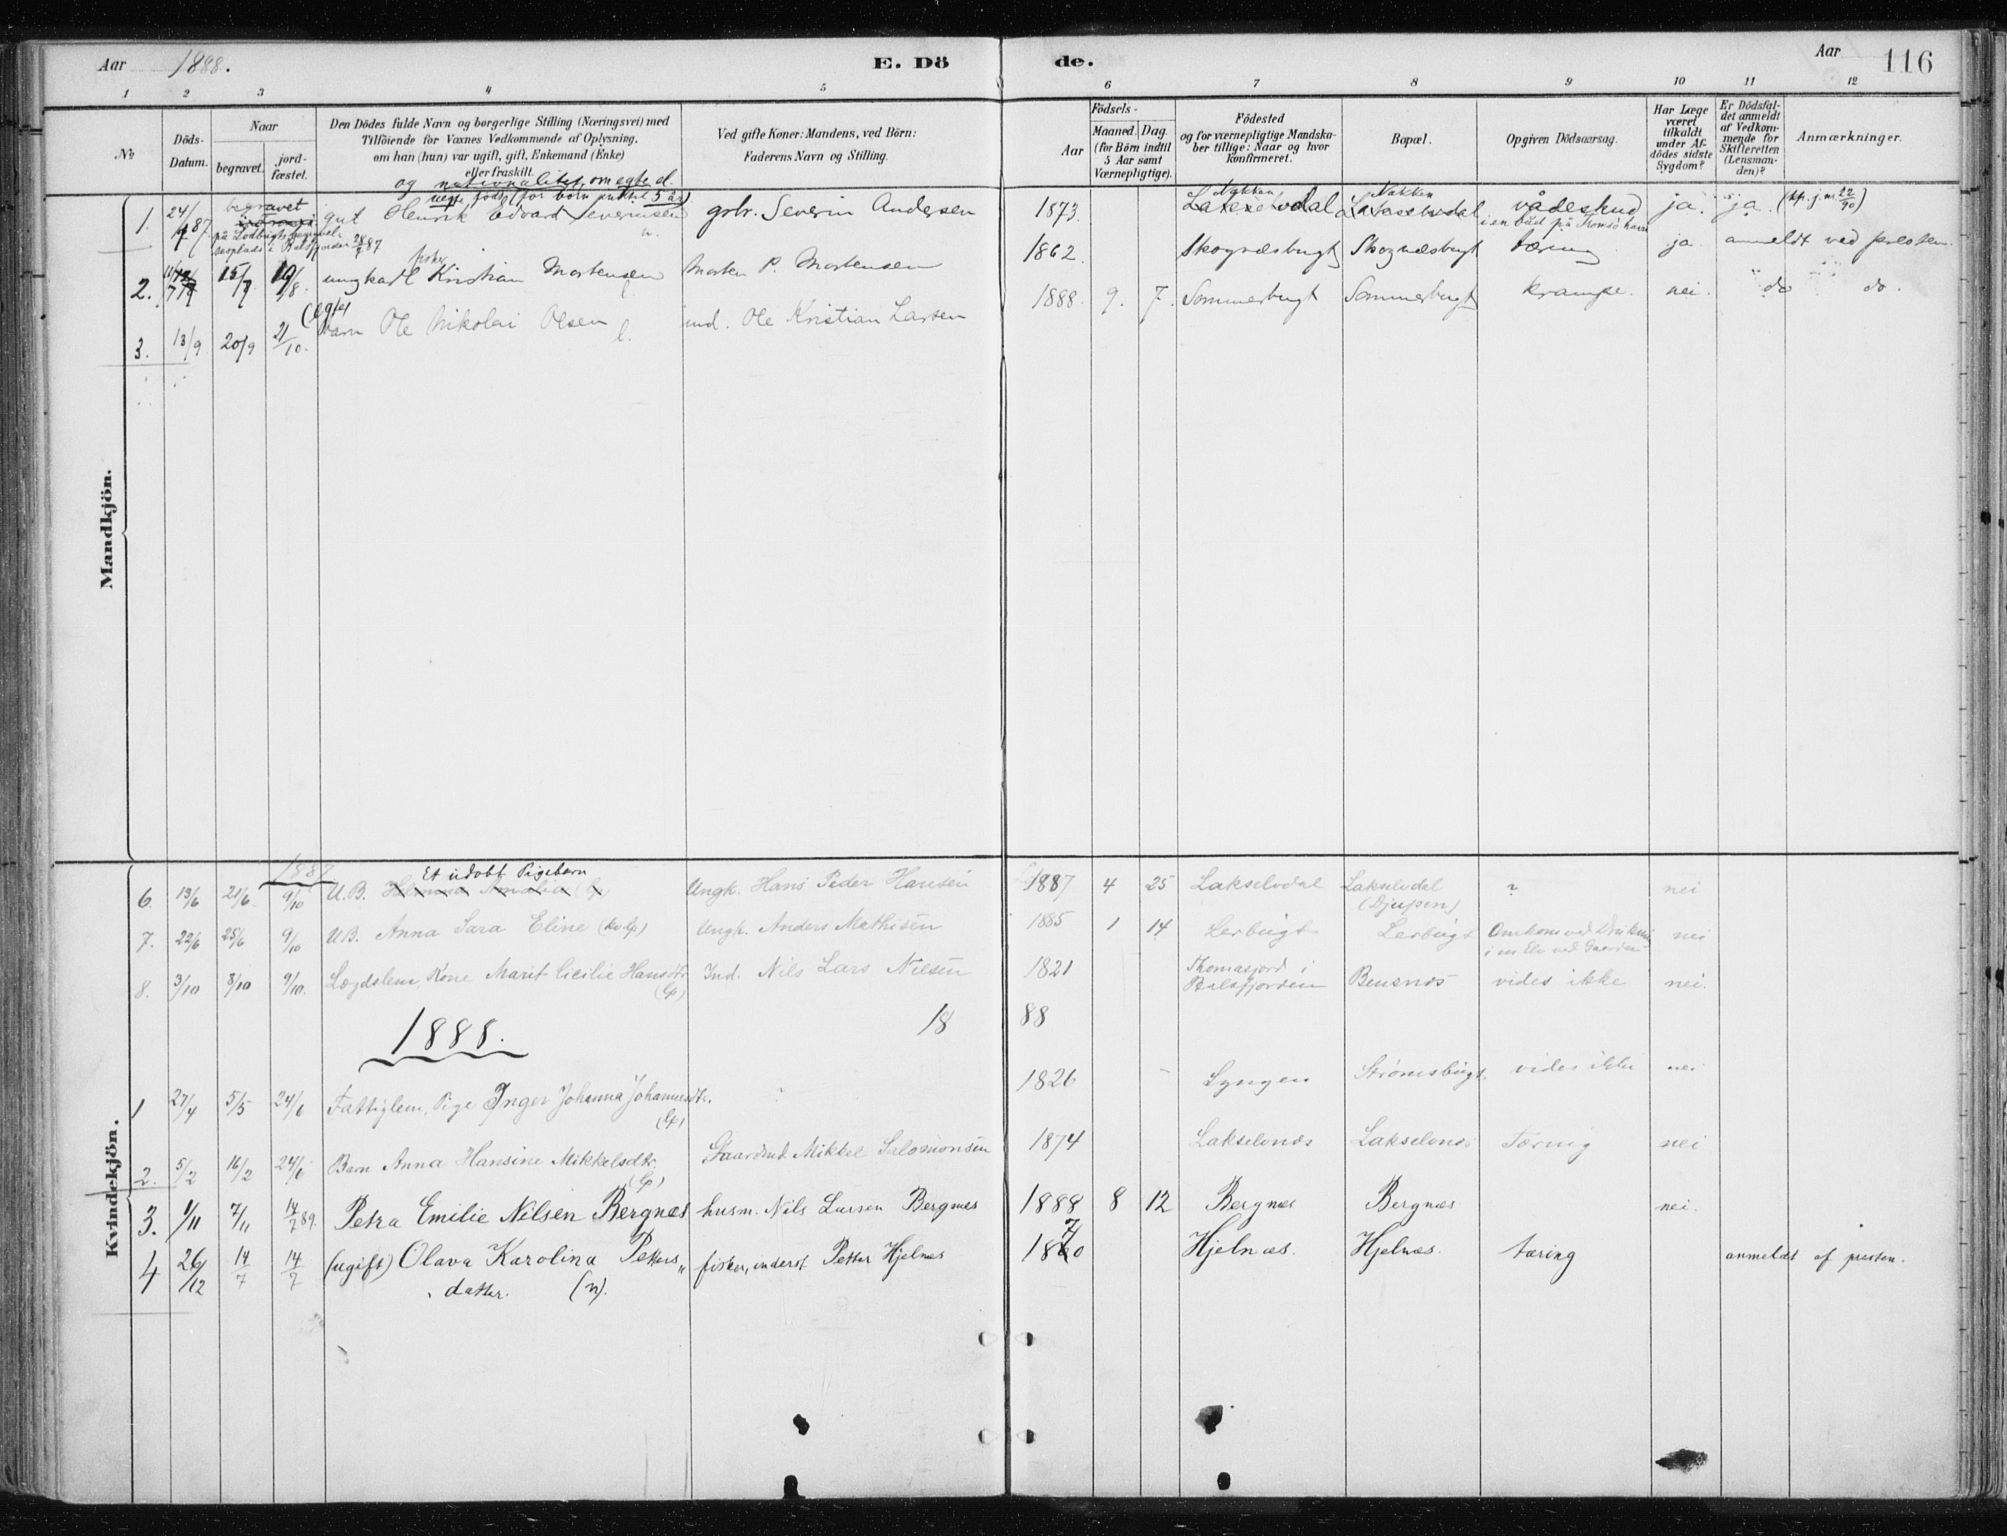 Aar 1888. E. Dö de. Aar 116
1 2 3 4 5 6 7 8 9 10 11 12
No.
Döds-Datum.
Naar
begravet.
jord-fæstet.
Den Dödes fulde Navn og borgerlige Stilling (Næringsvei) med
Tilföiende for Voxnes Vedkommende af Oplysning,
om han (hun) var ugift, gift, Enkemand (Enke)
eller fraskilt.
og nationalitet, om egte el.
uegte født (for børn indtil 5 år)
Ved gifte Koner: Mandens, ved Börn:
Faderens Navn og Stilling.
Födsels-
Aar
Maaned. Dag.
(for Börn indtil
5 Aar samt
Værnepligtige).
Födested
og for værnepligtige Mandska-
ber tillige: Naar og hvor
konfirmeret.
Bopæl.
Opgiven Dödsaarsag.
Har Læge
været
tilkaldt
under Af-
dödes sidste
Sygdom?
Er Dödsfal-
det anmeldt
af Vedkom-
mende for
Skifteretten
(Lensman-
den)?
Anmærkninger.
Mandkjön.
1. 24/7 87. begravet gut Henrik Edvard Severinsen n. grbr. Severin Andersen 1873. Nakken Nakken vådeskud ja. ja.
i en båd på Tromsø havn
2. 15/7 19/8 fisker ungkarl Kristian Mortensen Morten P. Mortensen 1862. Skognæsbugt Skognæsbugt tæring ja. anmeldt ved presten.
3. 13/9 20/9 21/10. (egte) barn Ole Nikolai Olsen l. ind. Ole Kristian Larsen 1888 9. 7. Sommerbugt Sommerbugt krampe. nei. do do.
Kvindekjön.
1887
6. 13/6 21/6 9/10 U.B. Et udøbt Pigebarn Ungk. Hans Peder Hansen 1887 4 25 Lakselvdal Lakselvdal (Djupen) ? nei
7. 22/6 25/6 9/10 U.B. Anna Sara Eline Ungk. Anders Mathisen 1885 1 14 Lerbugt Lerbugt Omkom ved Drukning i en Elv ved Gaarden nei
8. 3/10 8/10 9/10. Lægdslem, Kone Marit Cicilie Hansdtr. (Lp) Ind. Nils Lars Nilsen 1821 Thomasjord i Balsfjorden Bensnes vides ikke nei.
1888. 18 88
1 27/4 5/5 24/6 Fattiglem, Pige Inger Johanna Johannesdtr. (Lp) 1826 Lyngen Strømsbugt. vides ikke nei
2. 5/2 16/2 24/6 Barn Anna Hansine Mikkelsdtr. (Lp) Gaardmd. Mikkel Salomonsen 1874 Lakselvnes Lakselvnes Tæring nei
3. 1/11 7/11 14/7 89. Petra Emilie Nilsen Bergnes husm. Nils Larsen Bergnes 1888 8 12 Bergnes Bergnes nei.
4 26/12 14/7 14/7 (ugift) Olava Karolina Petters„ datter. (n). fisker, inderst Petter Hjelnes 1870 Hjelnæs. Hjelnæs. tæring anmeldt af presten.